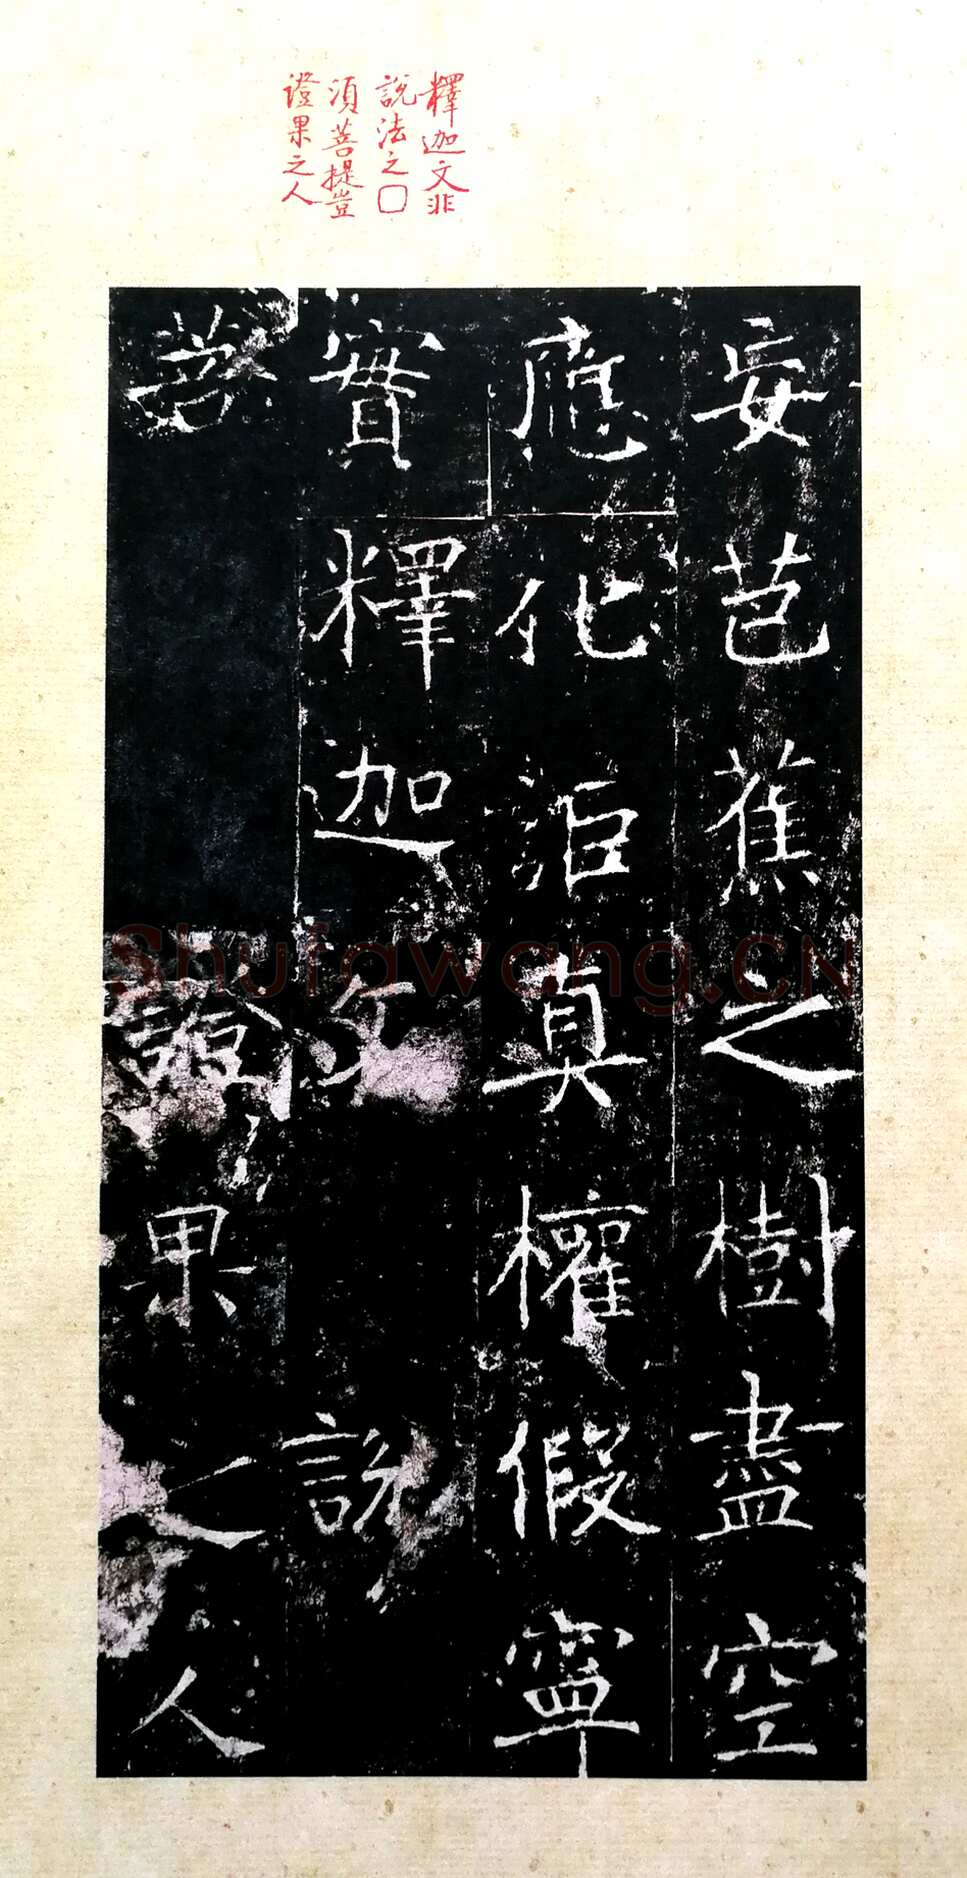 釋迦文非
說法之□
須菩提豈
證果之人
妄芭蕉之樹盡空
應化詎真權假寧
實釋迦文說
菩證果之人
Shufawang.CN